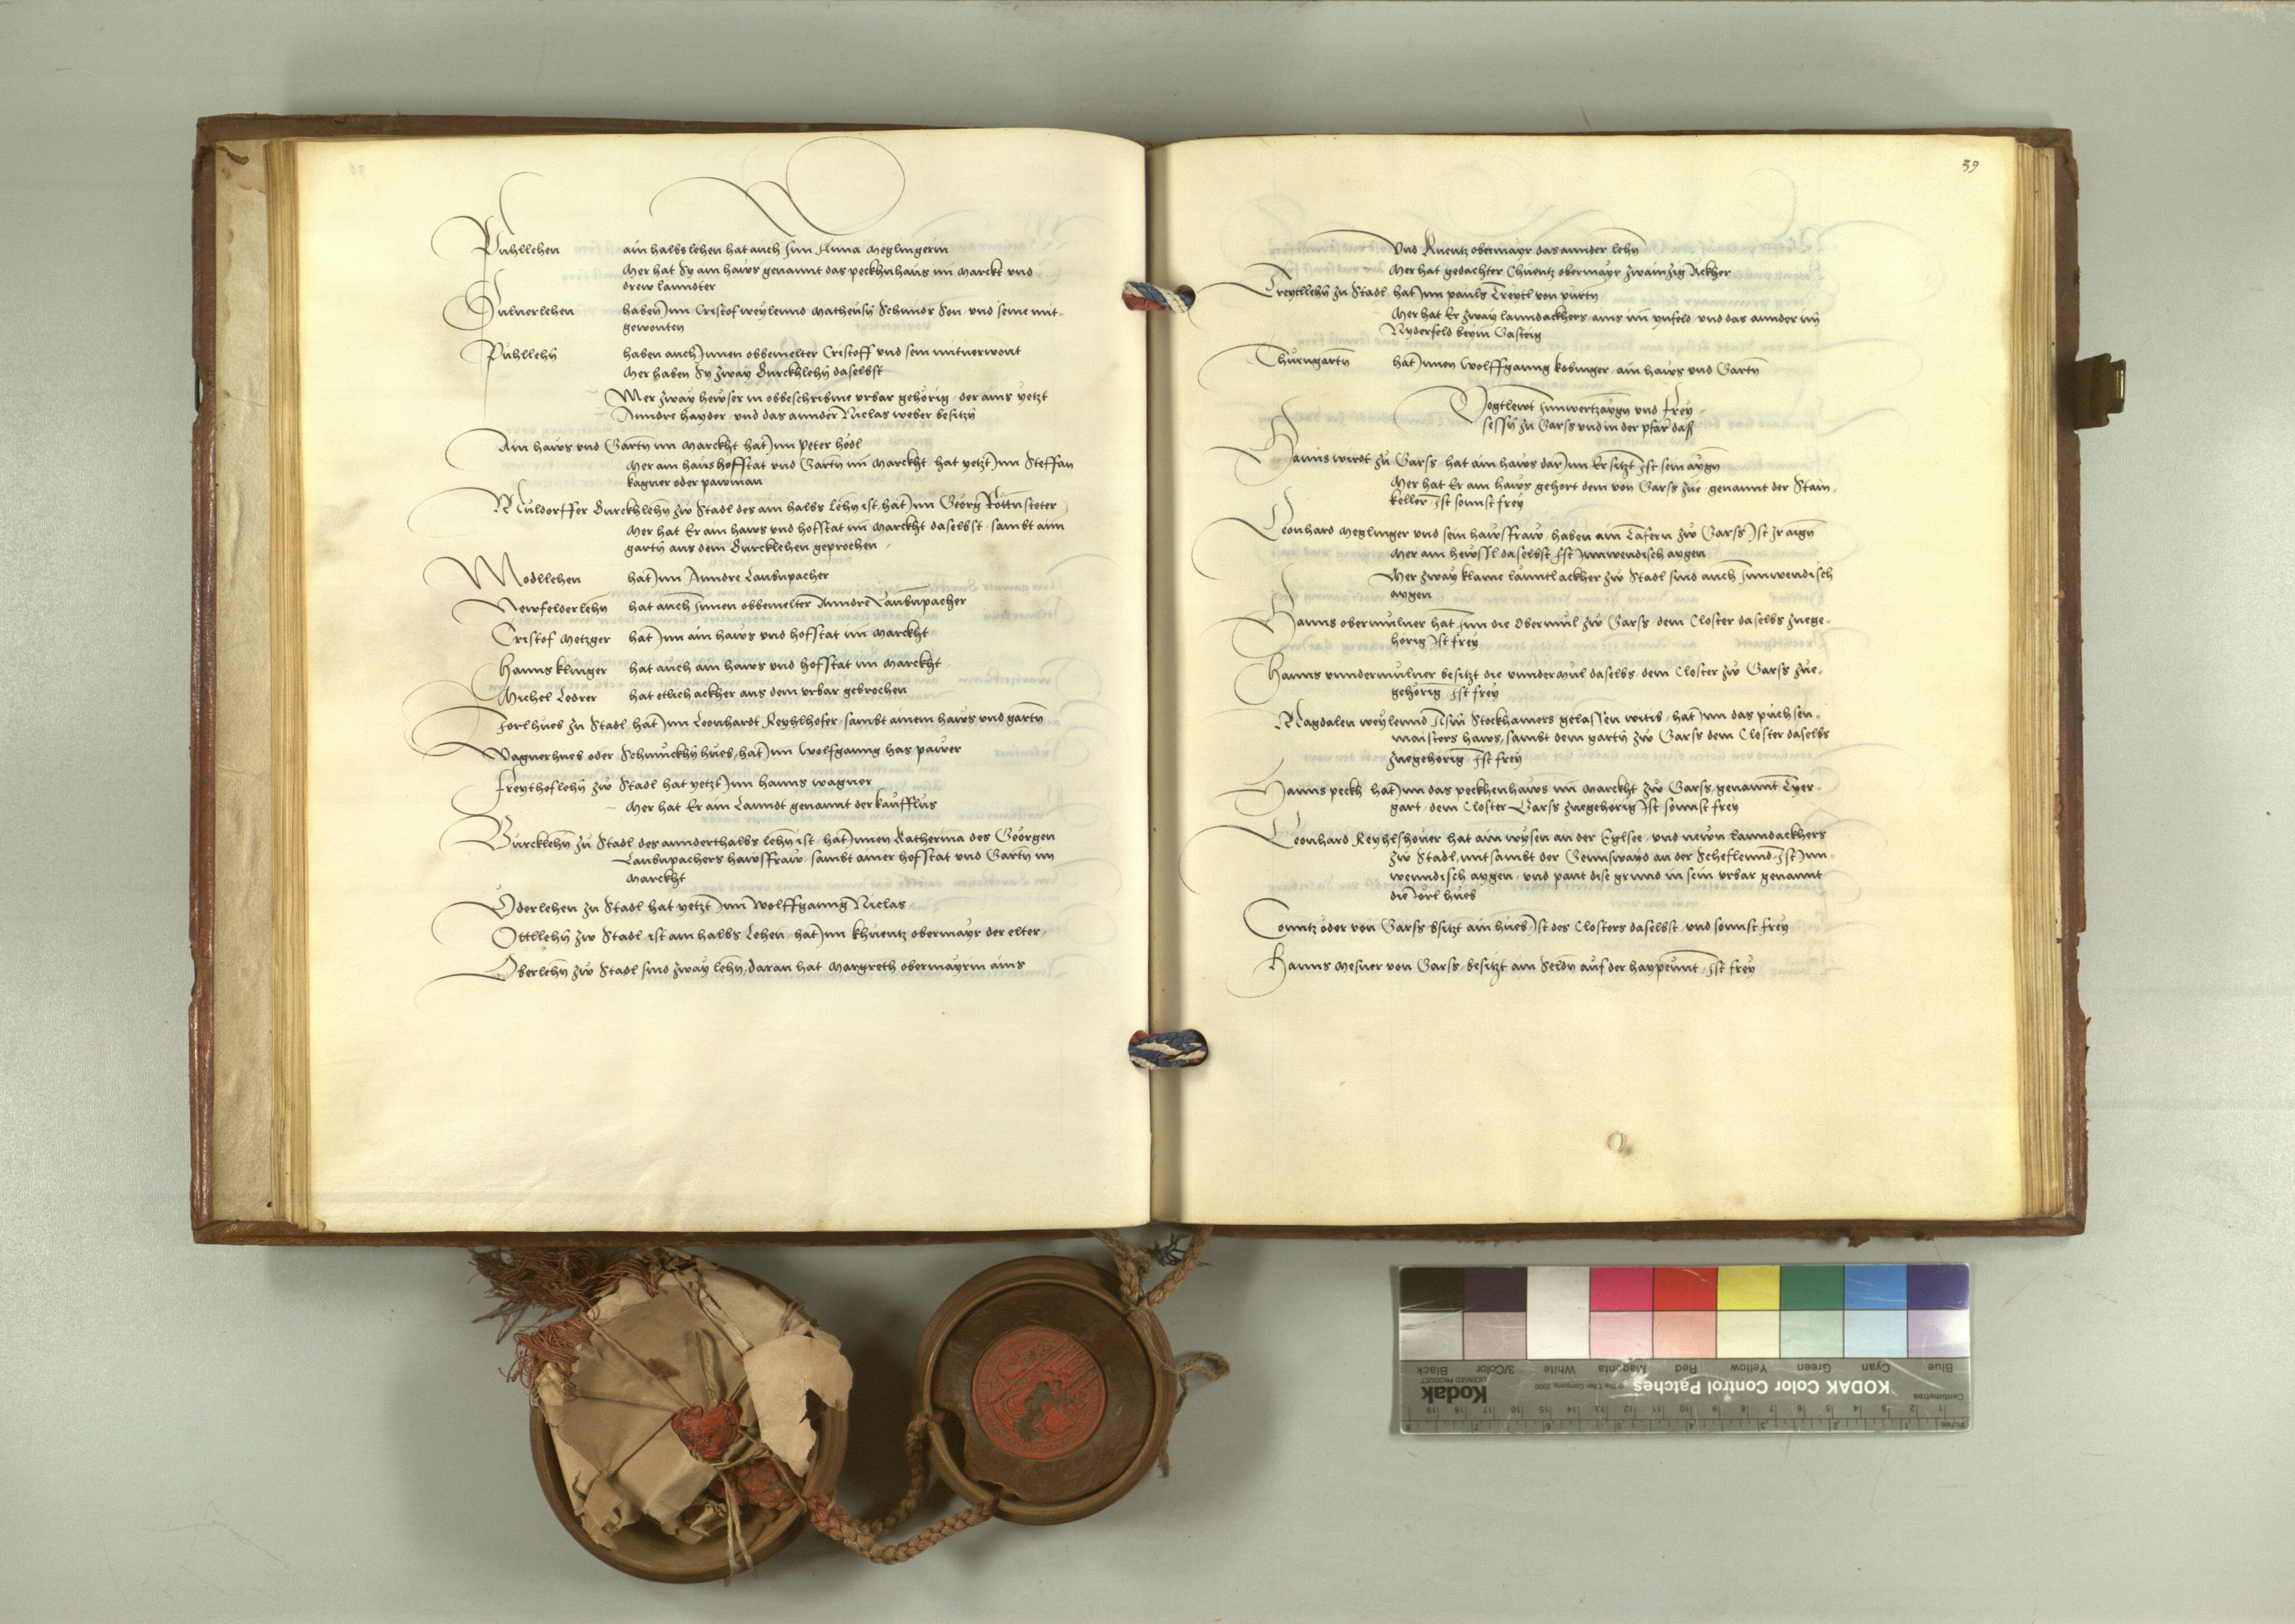 Puhllehen ain halbs lehen hat auch Inn Anna Meglingerin
Mer hat Sy ain haws genannt das peckhnhaus im Marckt und
drew lanndter
Hulnerlehen haben Inn Cristof weylennd Matheusn Schmids Son und seine mit-
gewonten
Puhllehn haben auch Innen obbemelter Cristoff und sein mitverwont
Mer haben Sy zway Burckhlehn daselbst
Mer zway hewser in obbeschribne urbar gehörig, der ains yetzt
Anndre hayder, und das annder Niclas weber besitzn
Ain haws und Gartn im Marckht hat Inn peter hödl
Mer ain haus hoffstat und Gartn im Marckht, hat yetzt Inn Steffan
kagner oder pawman
Muldorffer Burckhlehn zw Stadl des ain halbs Lehn ist, hat Inn Georg Rottnsteter
Mer hat Er ain haws und hofstat im Marckht daselbst, sambt aim
gartn aus dem Burcklehen geprochen
Modllehen hat Inn Anndre Laubnpacher
Newfelderlehn hat auch Innen obbemelter Anndre Laubnpacher
Cristof Metzger hat Inn ain haws und hofstat im Marckht
Hanns klinger hat auch ain haws und hofstat im Marckht
Michel Ledrer hat etlich ackher aus dem urbar gebrochen
Forlhueb zu Stadl, hat Inn Leonhardt Reyhlhofer, sambt ainem haws und gartn
Wagnerhueb oder Schmuckhn hueb, hat Inn Wolfganng has pawer
Freythoflehn zw Stadl hat yetzt Inn hanns wagner
Mer hat Er ain Lanndt genannt der kaufflus
Burcklehn zu Stadl des annderthalbs lehn ist, hat Innen Katherina des Georgen
Laubnpachers hawsfraw, sambt ainer hofstat und Gartn im
Marckht
Öderlehen zu Stadl hat yetzt Inn Wolffganng Niclas
Ottllehn zw Stadl ist ain halbs Lehen, hat Inn Khuentz obermayr der elter
Oberlehn zw Stadl sind zway lehn, daran hat Margreth obermayrin ains
39
Und Kuentz obermayr das annder lehn
Mer hat gedachter Chuentz obermayr zwainzig Ackher
Treytllehn zu Stadl hat Inn pauls Treytl von purtn
Mer hat Er zway lanndackhers, ains im ynfeld, und das annder im
Nyderfeld beym Gasteig
Thurngartn hat Innen Wolffganng kobinger, ain haws und Gartn
Vogtlewt Innwertzaygn und Frey-
sessn zu Garss und in der pfar das
Hanns wirdt zu Garss, hat ain haws dar Inn Er sitzt Ist sein aygn
Mer hat Er ain haws gehort dem von Garss zue, genannt der Stain-
keller Ist sonnst frey
Leonhard Meglinger und sein hawsfraw, haben ain Tafern zw Garss Ist Ir aign
Mer ain hewsl daselbst Ist Innwendisch aygen
Mer zway klaine lanntlackher zw Stadl sind auch Innwendisch
aygen
Hanns obermulner hat Inn die Obermul zw Garss, dem Closter daselbs zuege-
hörig Ist frey
Hanns unndermulner besitzt die unndermul daselbs, dem Closter zw Garss zue-
gehorig, Ist frey
Magdalen weylennd Stockhamers gelassen witib, hat Inn das puchsen-
maisters haws, sambt dem gartn zw Garss dem Closter daselbs
zuegehorig Ist frey
Hanns peckh hat Inn das peckhenhaws im Marckht zw Garss, genannt Tyer-
gart, dem Closter Garss zuegehorig Ist sonnst frey
Leonhard Reyhlshover hat ain wysen an der Eglsee, und newn lanndackhers
zw Stadl, mitsambt der Gennswayd an der Scheflennd Ist Inn-
wenndisch aygen, und pant dise grund in sein urbar genannt
die Forl hueb
Conntz öder von Garss bsitzt ain hueb Ist des Closters daselbst, und sonnst frey
Hanns Mesner von Garss, besitzt ain Seldn auf der haypeunt, Ist frey
KODAK Color Control Patches
Kodak
LICENSED PRODUCT
Black 3/Color White Magenta Red Yellow Green Cyan Blue
Centimetres
Inches